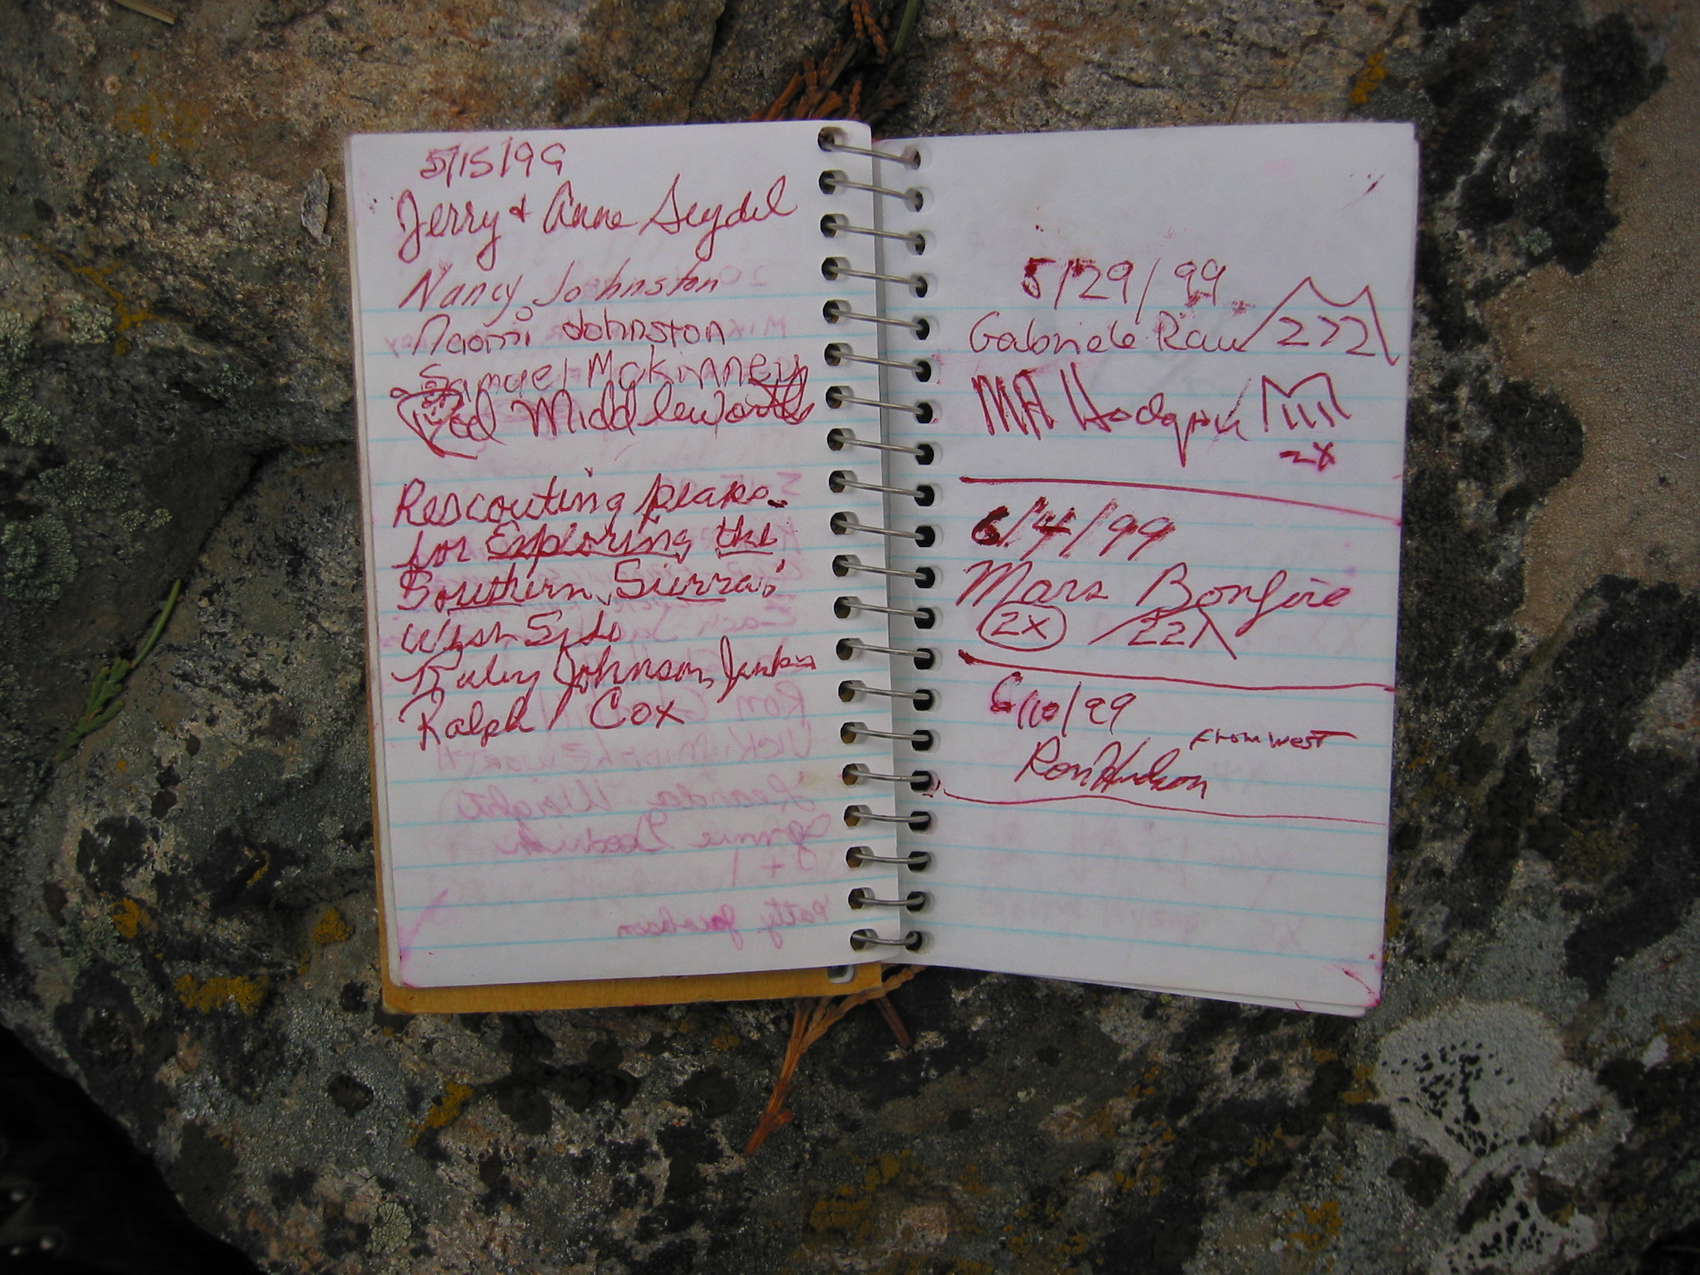 5/15/99
Jerry & Anne Seydel
Nancy Johnston
Naomi Johnston
Samuel McKinney
Middleworth
Rescouting peaks
for Exploring the
Southern Sierra:
West Side
Ruby Johnson Jenkins
Ralph Cox
5/29/99
Gabriele Rau 222
MH
2x
6/4/99
Mars Bonfire
2x 22
6/10/99
from west
Ron Hudson